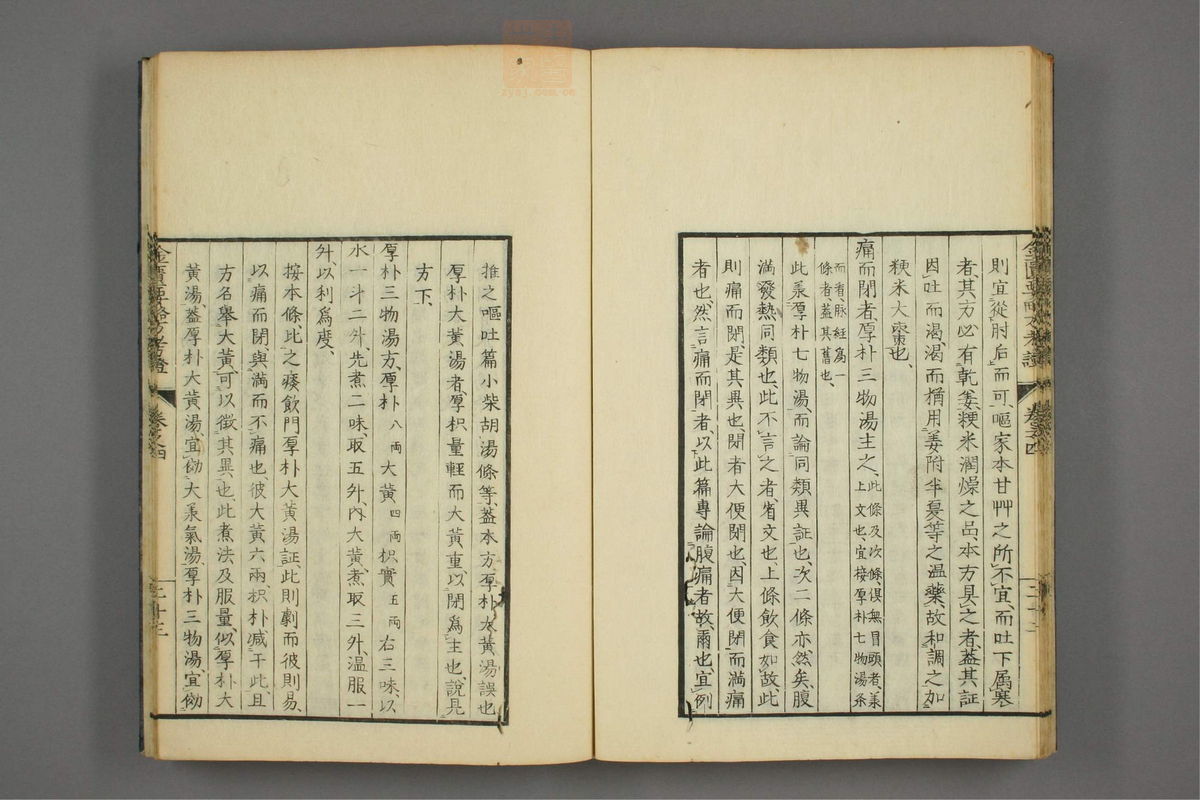 則宜從肘后而可、嘔家本甘艸之所不宜、而吐下属寒
者、其方必有乾姜粳米潤燥之品、本方具之者、蓋其証
因吐而渴、渴而用姜附半夏等之温藥、故和調之加
粳米大棗也、
痛而閉者、厚朴三物湯主之、此條及次條、俱無冒頭者、義
上文也、宜接厚朴七物湯条
而看、脉經爲一
條者、蓋其舊也、
此羕厚朴七物湯、而論同類異証也、次二條亦然矣、腹
滿發熱同類也、此不言之者、省文也、上條飲食如故、此
則痛而閉、是其異也、閉者大便閉也、因大便閉而滿痛
者也、然言痛而閉者、以此篇專論腹痛者故爾也、宜例
推之嘔吐篇小柴胡湯條等、蓋本方厚朴大黄湯誤也
厚朴大黄湯者、厚枳量輕而大黄重、以閉爲主也、說見
方下、
厚朴三物湯方、厚朴八兩大黄四兩枳實五兩右三味、以
水一斗二升、先煮二味、取五升、內大黄、煮取三升、温服一
升、以利爲度、
按本條、比之痰飲門厚朴大黄湯証、此則劇而彼則易、
以痛而閉、與滿而不痛也、彼大黄六兩、枳朴減于此、且
方名舉大黄、可以徵其異也、此煮法及服量、似厚朴大
黄湯、蓋厚朴大黄湯、宜倣大承氣湯、厚朴三物湯、宜倣
金匱要略方考證
卷之四
二十三
zysj.com.cn